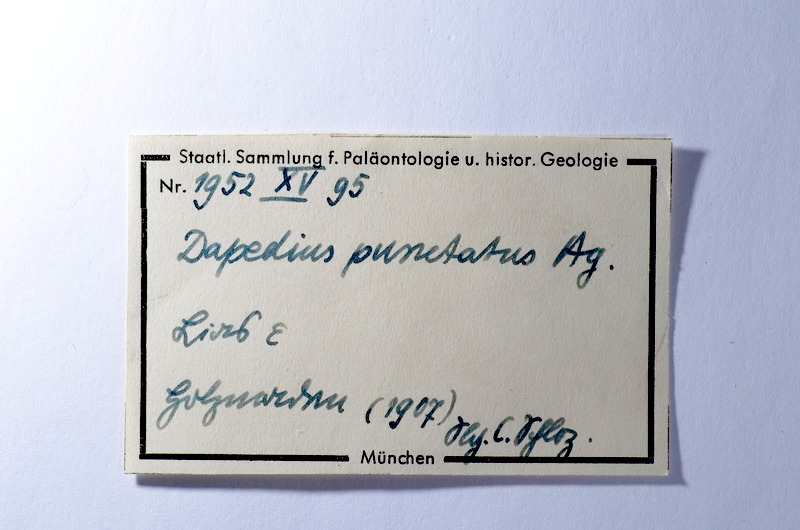 Staatl. Sammlung f. Paläontologie u. histor. Geologie
Nr. 1952 XV 95
Dapedius punctatus Ag.
Lias ε
Holzmaden (1907)
C.
München